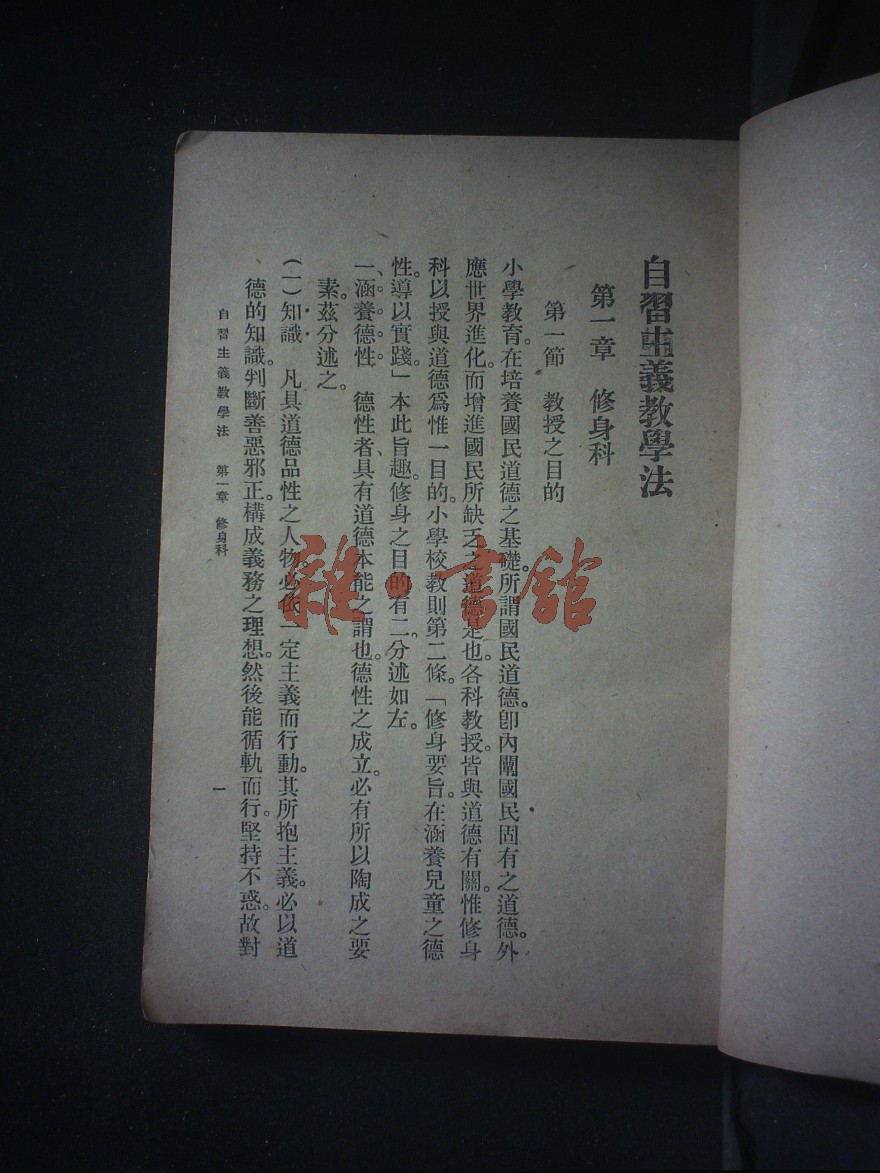 自習主義教學法
第一章　修身科
第一節　教授之目的
小學教育。在培養國民道德之基礎。所謂國民道德。卽內闡國民固有之道德。外
應世界進化。而增進國民所缺乏之道德是也。各科教授。皆與道德有關。惟修身
科以授與道德爲惟一目的。小學校教則第二條。「修身要旨。在涵養兒童之德
性。導以實踐。」本此旨趣。修身之目的有二。分述如左。
一、涵養德性　德性者、具有道德本能之謂也。德性之成立。必有所以陶成之要
素。茲分述之。
(一)知識　凡具道德品性之人物。必依一定主義而行動。其所抱主義。必以道
德的知識。判斷善惡邪正。構成義務之理想。然後能循軌而行。堅持不惑。故對
自習主義教學法　第一章　修身科
一
雜·書館